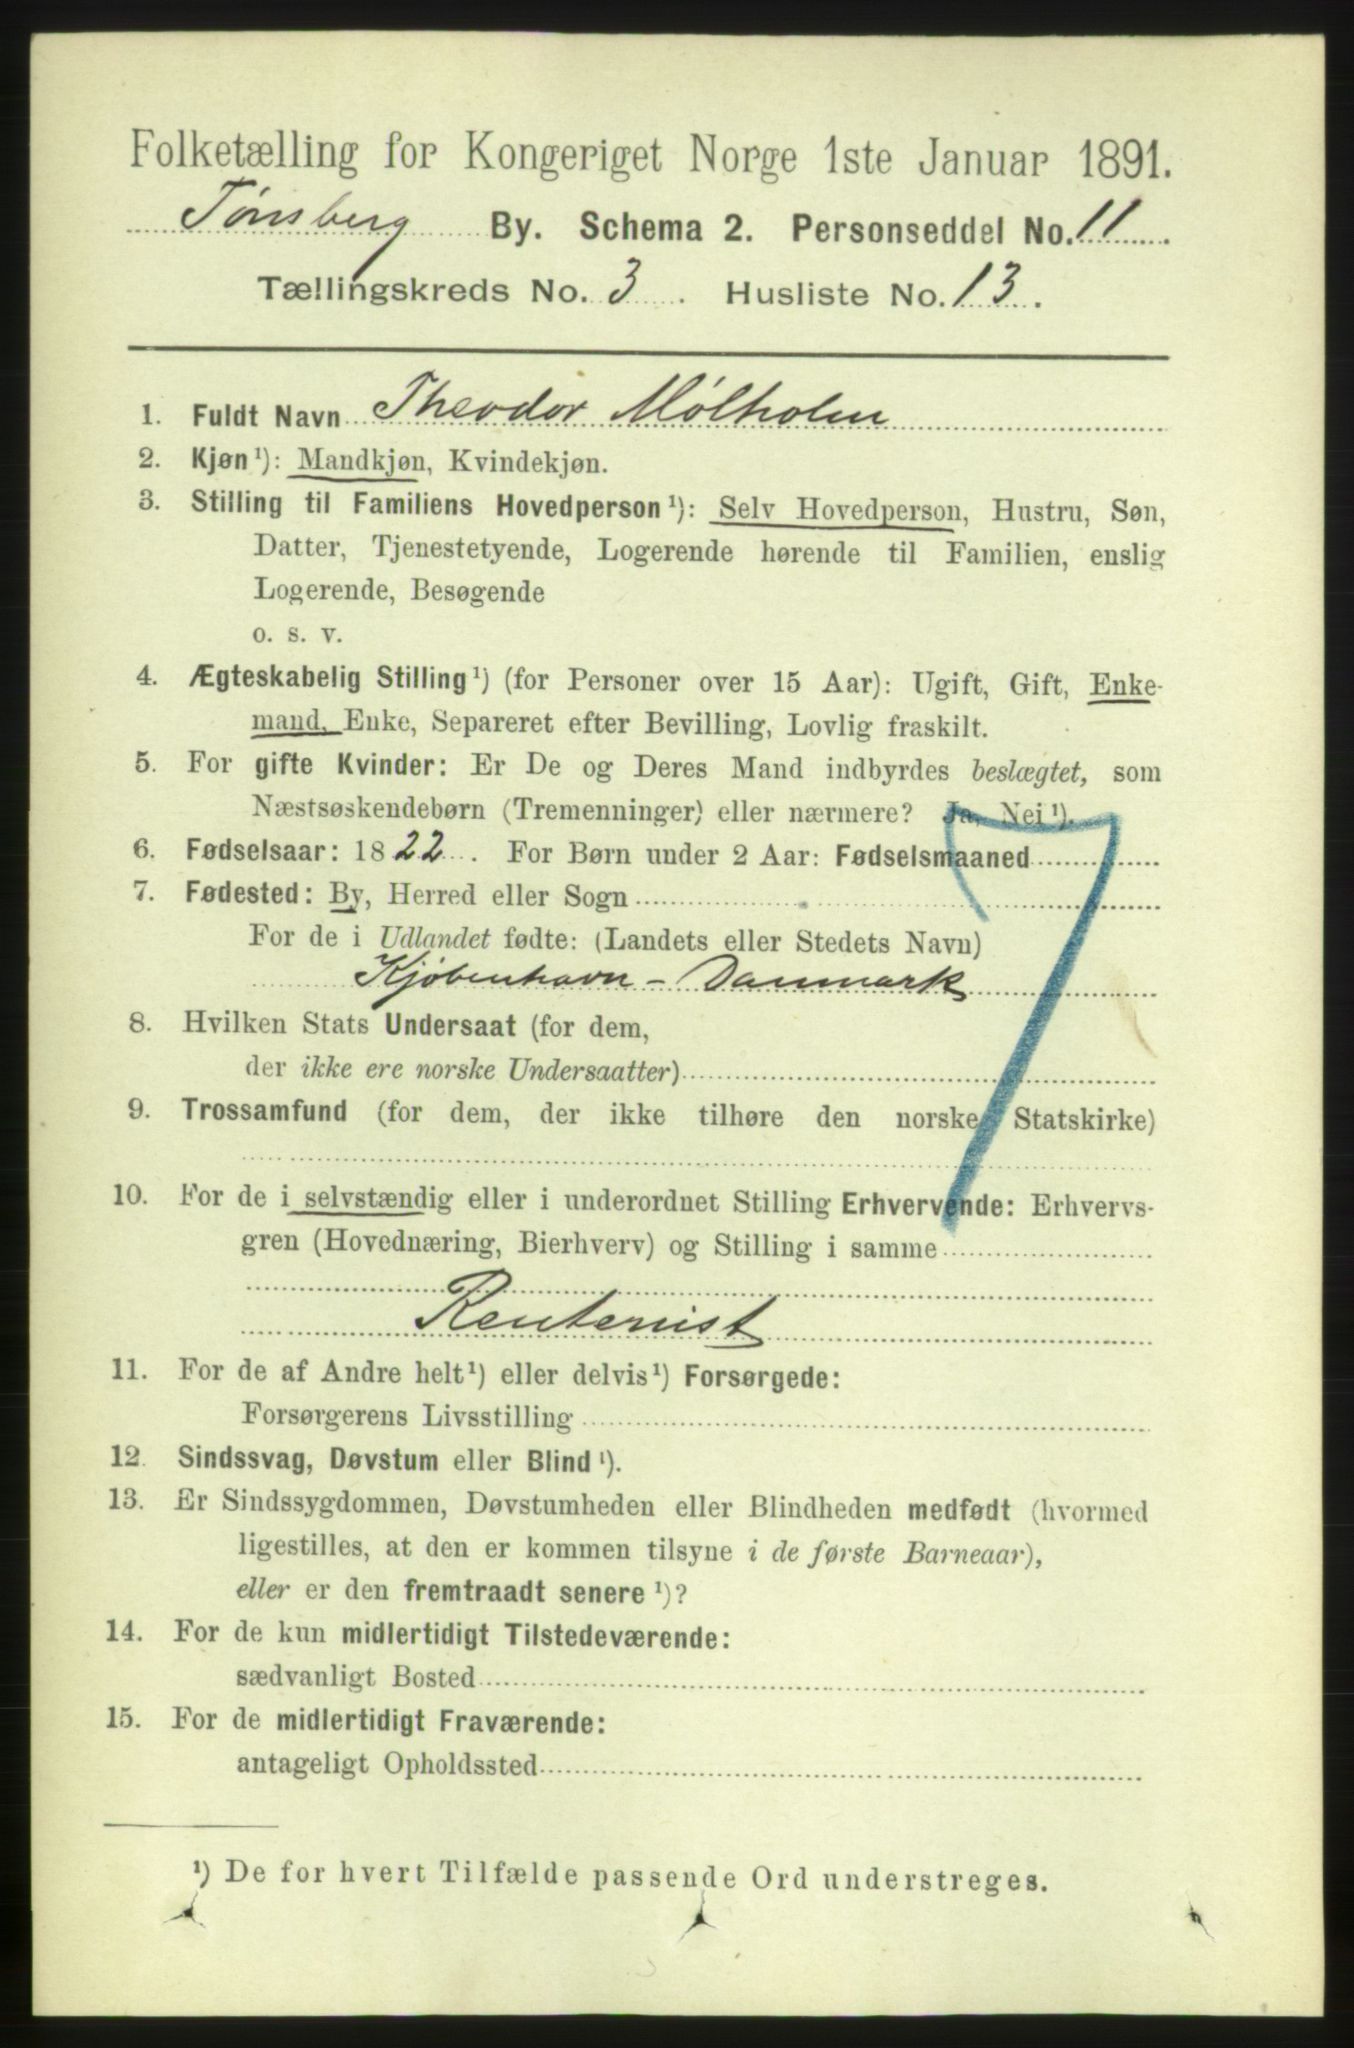 Folketælling for Kongeriget Norge 1ste Januar 1891.
Tønsberg By. Schema 2. Personseddel No. 11.
Tællingskreds No. 3. Husliste No. 13.
1. Fuldt Navn Theodor Mølholm
2. Kjøn ¹): Mandkjøn, Kvindekjøn.
3. Stilling til Familiens Hovedperson ¹): Selv Hovedperson, Hustru, Søn,
Datter, Tjenestetyende, Logerende hørende til Familien, enslig
Logerende, Besøgende
o. s. v.
4. Ægteskabelig Stilling ¹) (for Personer over 15 Aar): Ugift, Gift, Enke-
mand, Enke, Separeret efter Bevilling, Lovlig fraskilt.
5. For gifte Kvinder: Er De og Deres Mand indbyrdes beslægtet, som
Næstsøskendebørn (Tremenninger) eller nærmere? Ja, Nei ¹).
6. Fødselsaar: 1822. For Børn under 2 Aar: Fødselsmaaned
7. Fødested: By, Herred eller Sogn
For de i Udlandet fødte: (Landets eller Stedets Navn)
Kjøbenhavn - Danmark
8. Hvilken Stats Undersaat (for dem,
der ikke ere norske Undersaatter)
9. Trossamfund (for dem, der ikke tilhøre den norske Statskirke)
10. For de i selvstændig eller i underordnet Stilling Erhvervende: Erhvervs-
gren (Hovednæring, Bierhverv) og Stilling i samme
Rentenist
11. For de af Andre helt ¹) eller delvis ¹) Forsørgede:
Forsørgerens Livsstilling
12. Sindssvag, Døvstum eller Blind ¹).
13. Er Sindssygdommen, Døvstumheden eller Blindheden medfødt (hvormed
ligestilles, at den er kommen tilsyne i de første Barneaar),
eller er den fremtraadt senere ¹)?
14. For de kun midlertidigt Tilstedeværende:
sædvanligt Bosted
15. For de midlertidigt Fraværende:
antageligt Opholdssted
¹) De for hvert Tilfælde passende Ord understreges.
7